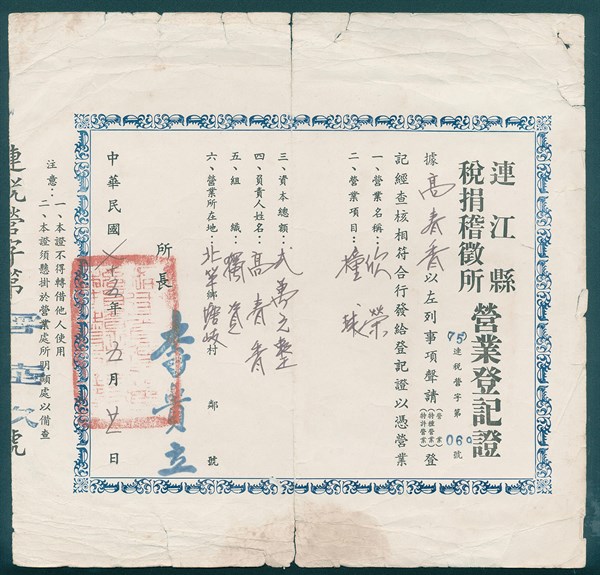 連江縣
稅捐稽徵所
營業登記證
75連稅營字第060號
據高春香以左列事項聲請(營業)(特種營業)(特許營業)登
記經查核相符合行發給登記證以憑營業
一、營業名稱：欣榮
二、營業項目：撞球
三、資本總額：弍萬元整
四、負責人姓名：高春香
五、組織：獨資
六、營業所在地：北竿鄉塘岐村 鄰 號
所長 李貴立
中華民國七十五年五月廿二日
注意：一、本證不得轉借他人使用
二、本證須懸掛於營業處所明顯處以備查
連稅營字第 號